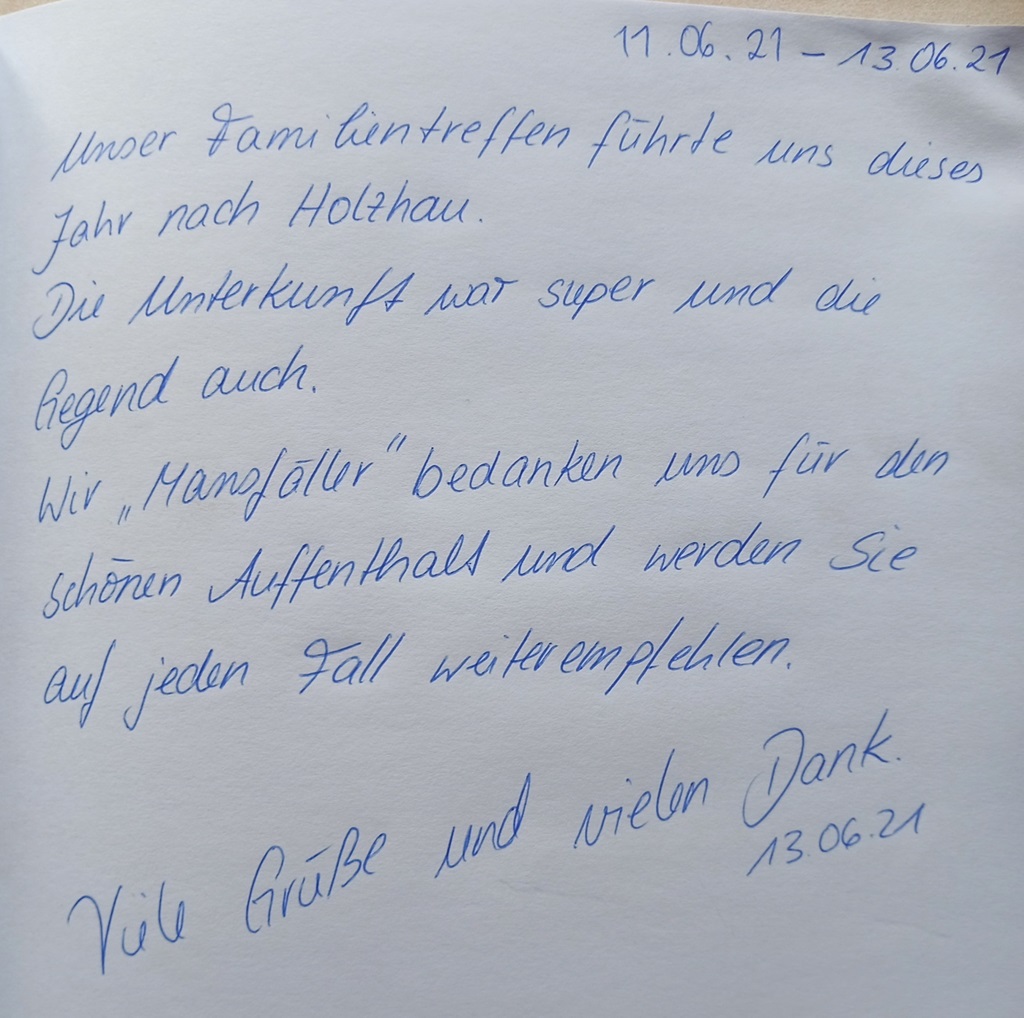 11.06.21 – 13.06.21
Unser Familientreffen führte uns dieses
Jahr nach Holzhau.
Die Unterkunft war super und die
Gegend auch.
Wir „Mansfäller“ bedanken uns für den
schönen Auffenthalt und werden Sie
auf jeden Fall weiterempfehlen.
Viele Grüße und vielen Dank.
13.06.21